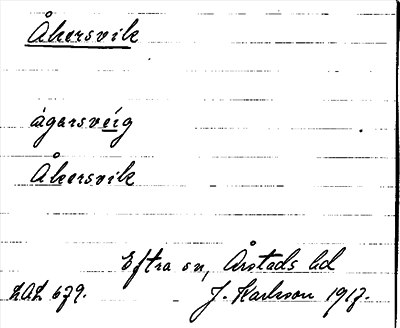 Åkersvik
ágarsveíg
Åkersvik
Eftra sn, Årstads hd
LAL 679. J. Karlsson 1917.